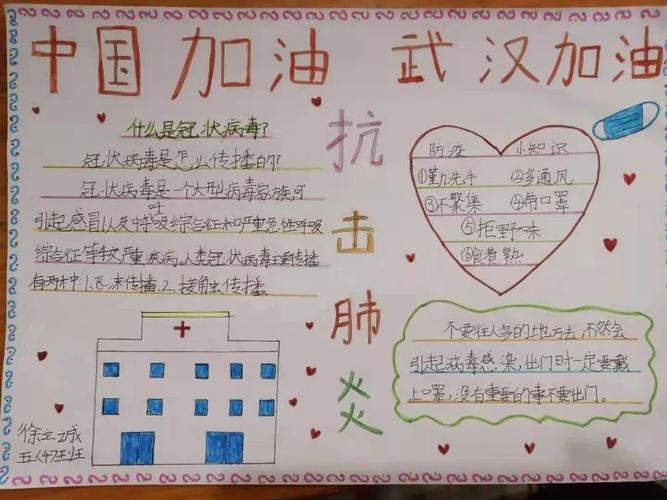 中国加油 武汉加油
什么是冠状病毒?
冠状病毒是怎么传播的?
冠状病毒是一个大型病毒家族,可
引起感冒以及中呼吸综合征和严重急性呼吸
综合征等较严重疾病,人类冠状病毒主要传播
有两种:1.飞沫传播,2.接触虫传播.
抗击肺炎
防疫 小知识
①勤洗手 ②多通风
③不聚集 ④带口罩
⑤拒野味
⑥食煮熟
不要往人多的地方去,不然会
引起病毒感染,出门时一定要戴
上口罩,没有重要的事不要出门。
徐立诚
五〈4〉班